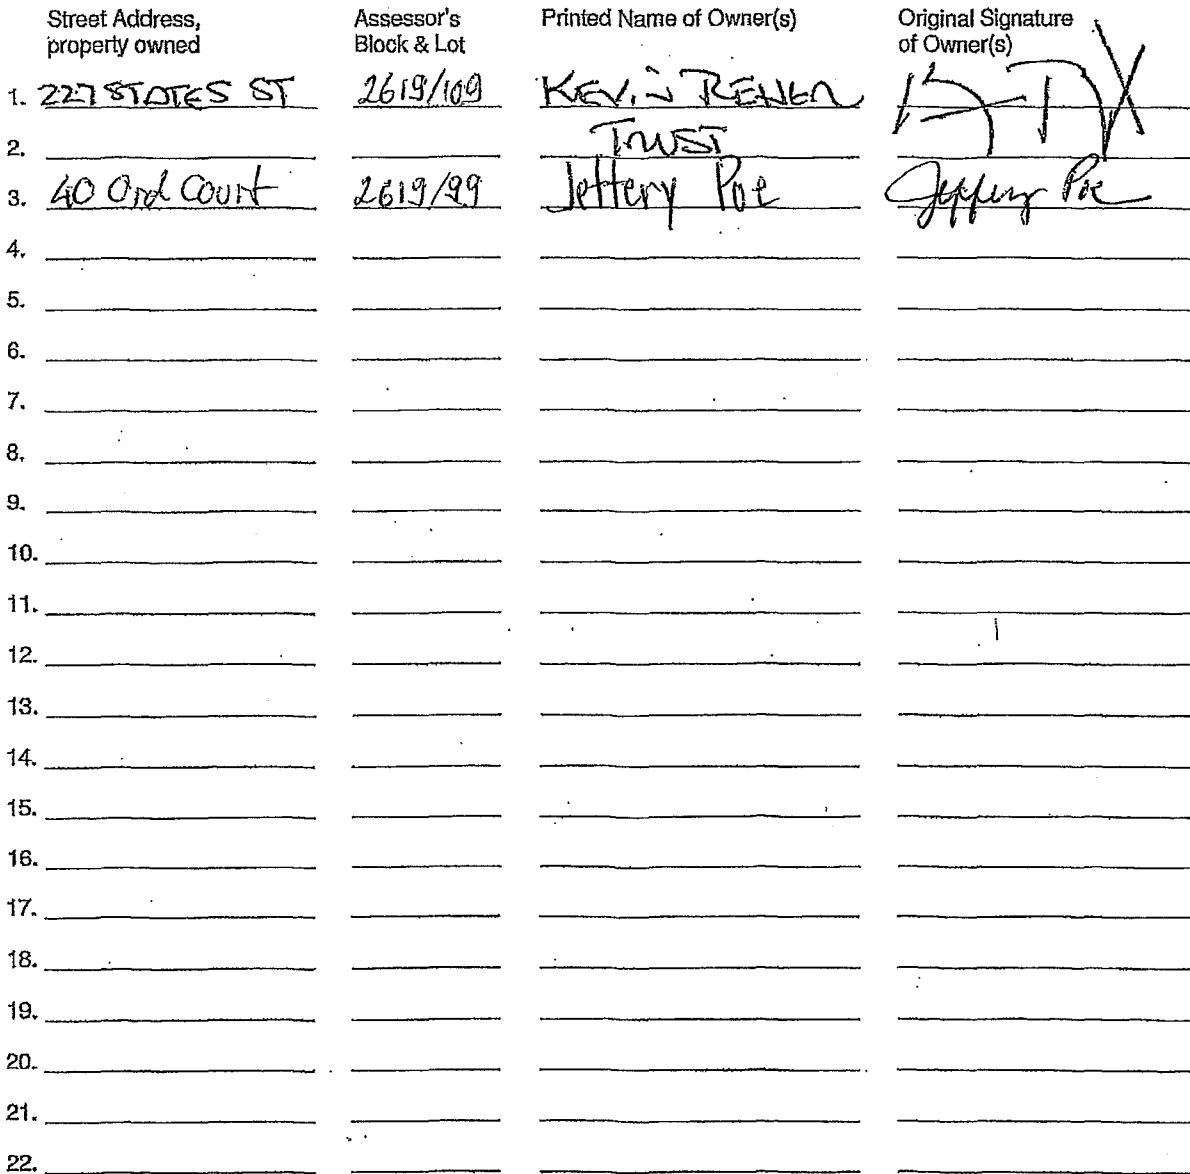 Street Address, property owned Assessor's Block & Lot Printed Name of Owner(s) Original Signature of Owner(s)
1. 227 STATES ST 2619/109 KEVIN
2. TRUST
3. 40 Ord Court 2619/99 Jeffery Poe Jeffery Poe
4.
5.
6.
7.
8.
9.
10.
11.
12.
13.
14.
15.
16.
17.
18.
19.
20.
21.
22.